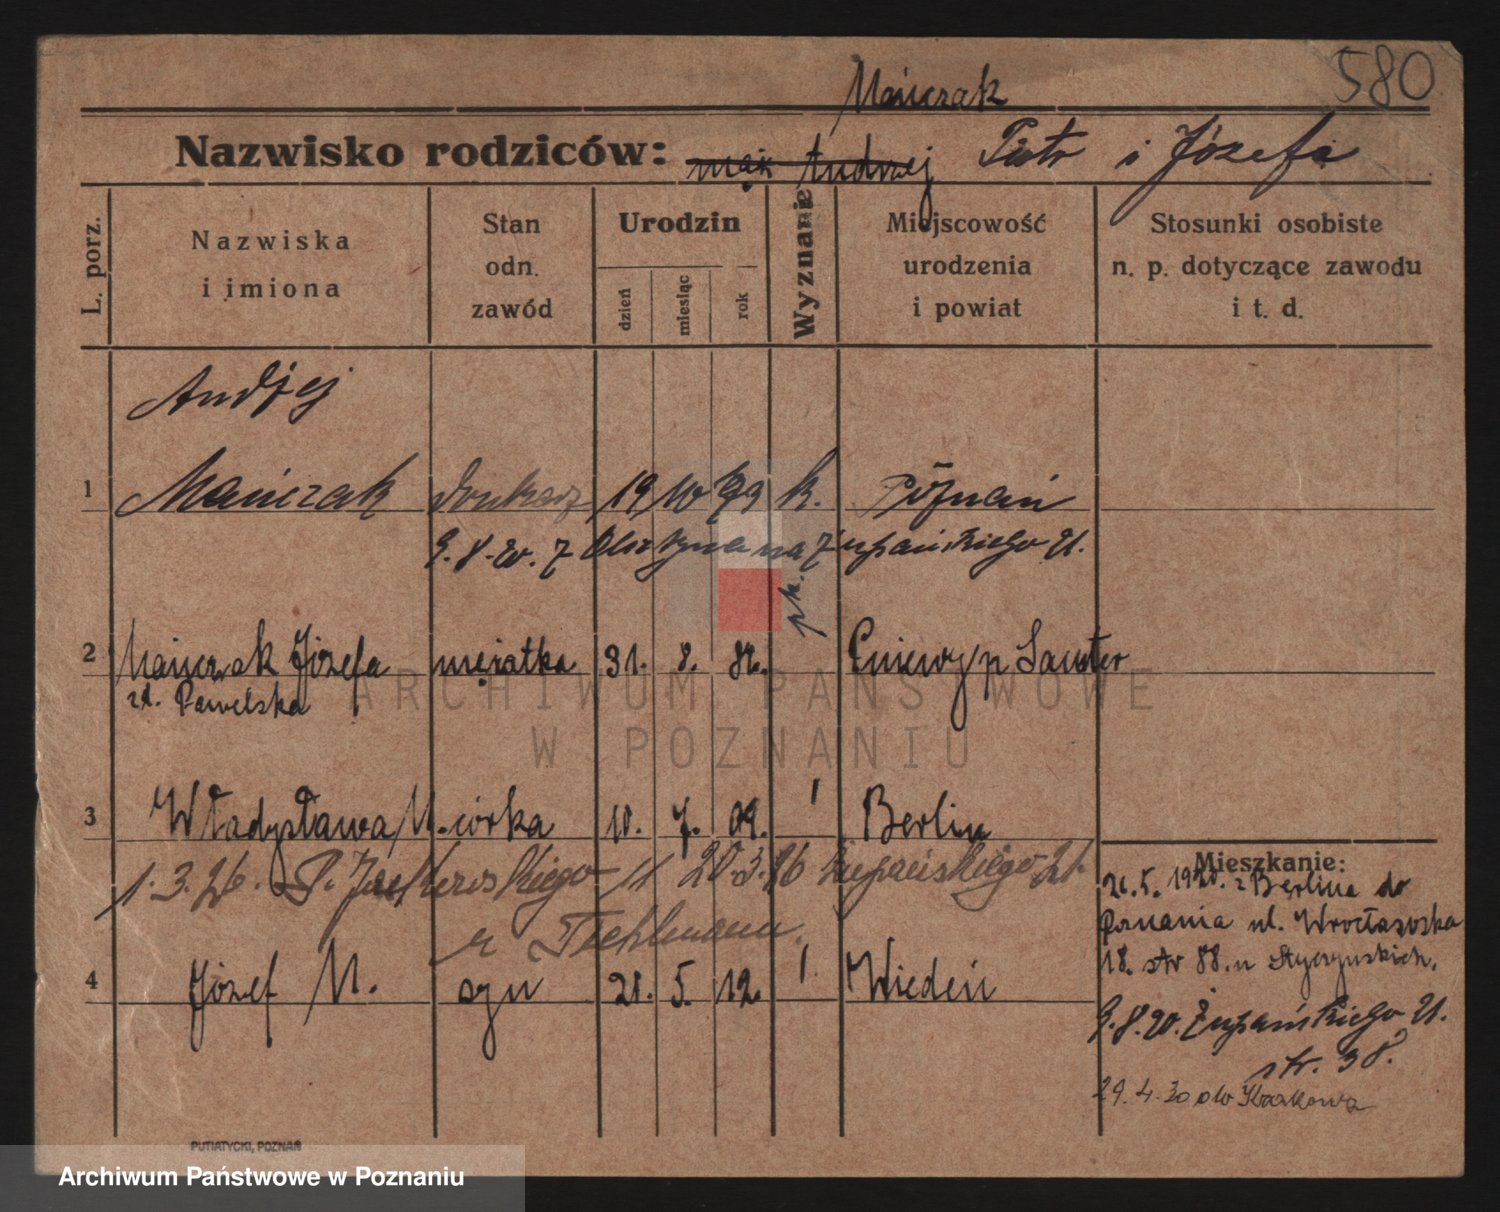 580
Mańczak
Nazwisko rodziców: mąż Andrzej Piotr i Józefa
L. porz.
Nazwiska i imiona
Stan odn. zawód
Urodzin
dzień
miesiąc
rok
Wyznanie
Miejscowość urodzenia i powiat
Stosunki osobiste n. p. dotyczące zawodu i t. d.
Andrzej
1 Mańczak drukarz 19 10 99 k. Poznań
9.8.20. z Olsztyna na Żupańskiego 21.
2 Mańczak Józefa mężatka 31. 8. 82. Pniewy p Samter
zd. Pawelska
3 Władysława M. córka 10. 7. 09. Berlin
Mieszkanie:
1.3.26. 11 20.3.26 Żupańskiego 21.
21.5. 1920. z Berlina do
Poznania ul. Wrocławska
18. str 88. u
4 Józef M. syn 21. 5. 12. Wiedeń
9.8.20. Żupańskiego 21.
str. 38.
29.4.30 do Krakowa
PUTIATYCKI, POZNAŃ
ARCHIWUM PAŃSTWOWE
W POZNANIU
Archiwum Państwowe w Poznaniu